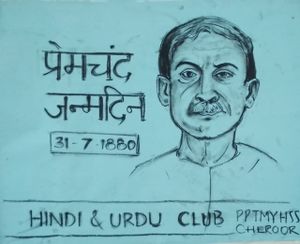 प्रेमचंद
जन्मदिन
31-7-1880
HINDI & URDU CLUB PPTMYHSS
CHEROOR